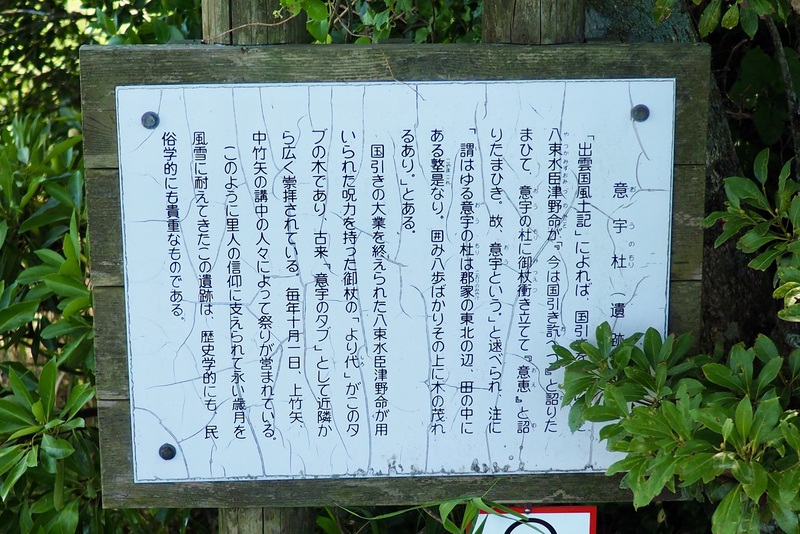 意宇杜（遺跡
「出雲国風土記」によれば、国引
八束水臣津野命が『今は国引き訖へつ』と詔りた
まひて、意宇の杜に御杖衝き立てて『意恵』と詔
りたまひき、故、意宇という。」と述べられ、注に
「謂はゆる意宇の杜は郡家の東北の辺、田の中に
ある塾是なり。囲み八歩ばかりその上に木の茂れ
るあり。」とある。
国引きの大業を終えられた八束水臣津野命が用
いられた呪力を持った御杖の「より代」がこのタ
ブの木であり、古来「意宇のタブ」として近隣か
ら広く崇拝されている。毎年十月一日、上竹矢
中竹矢の講中の人々によって祭りが営まれている。
このように里人の信仰に支えられて永い歳月を
風雪に耐えてきたこの遺跡は、歴史学的にも、民
俗学的にも貴重なものである。